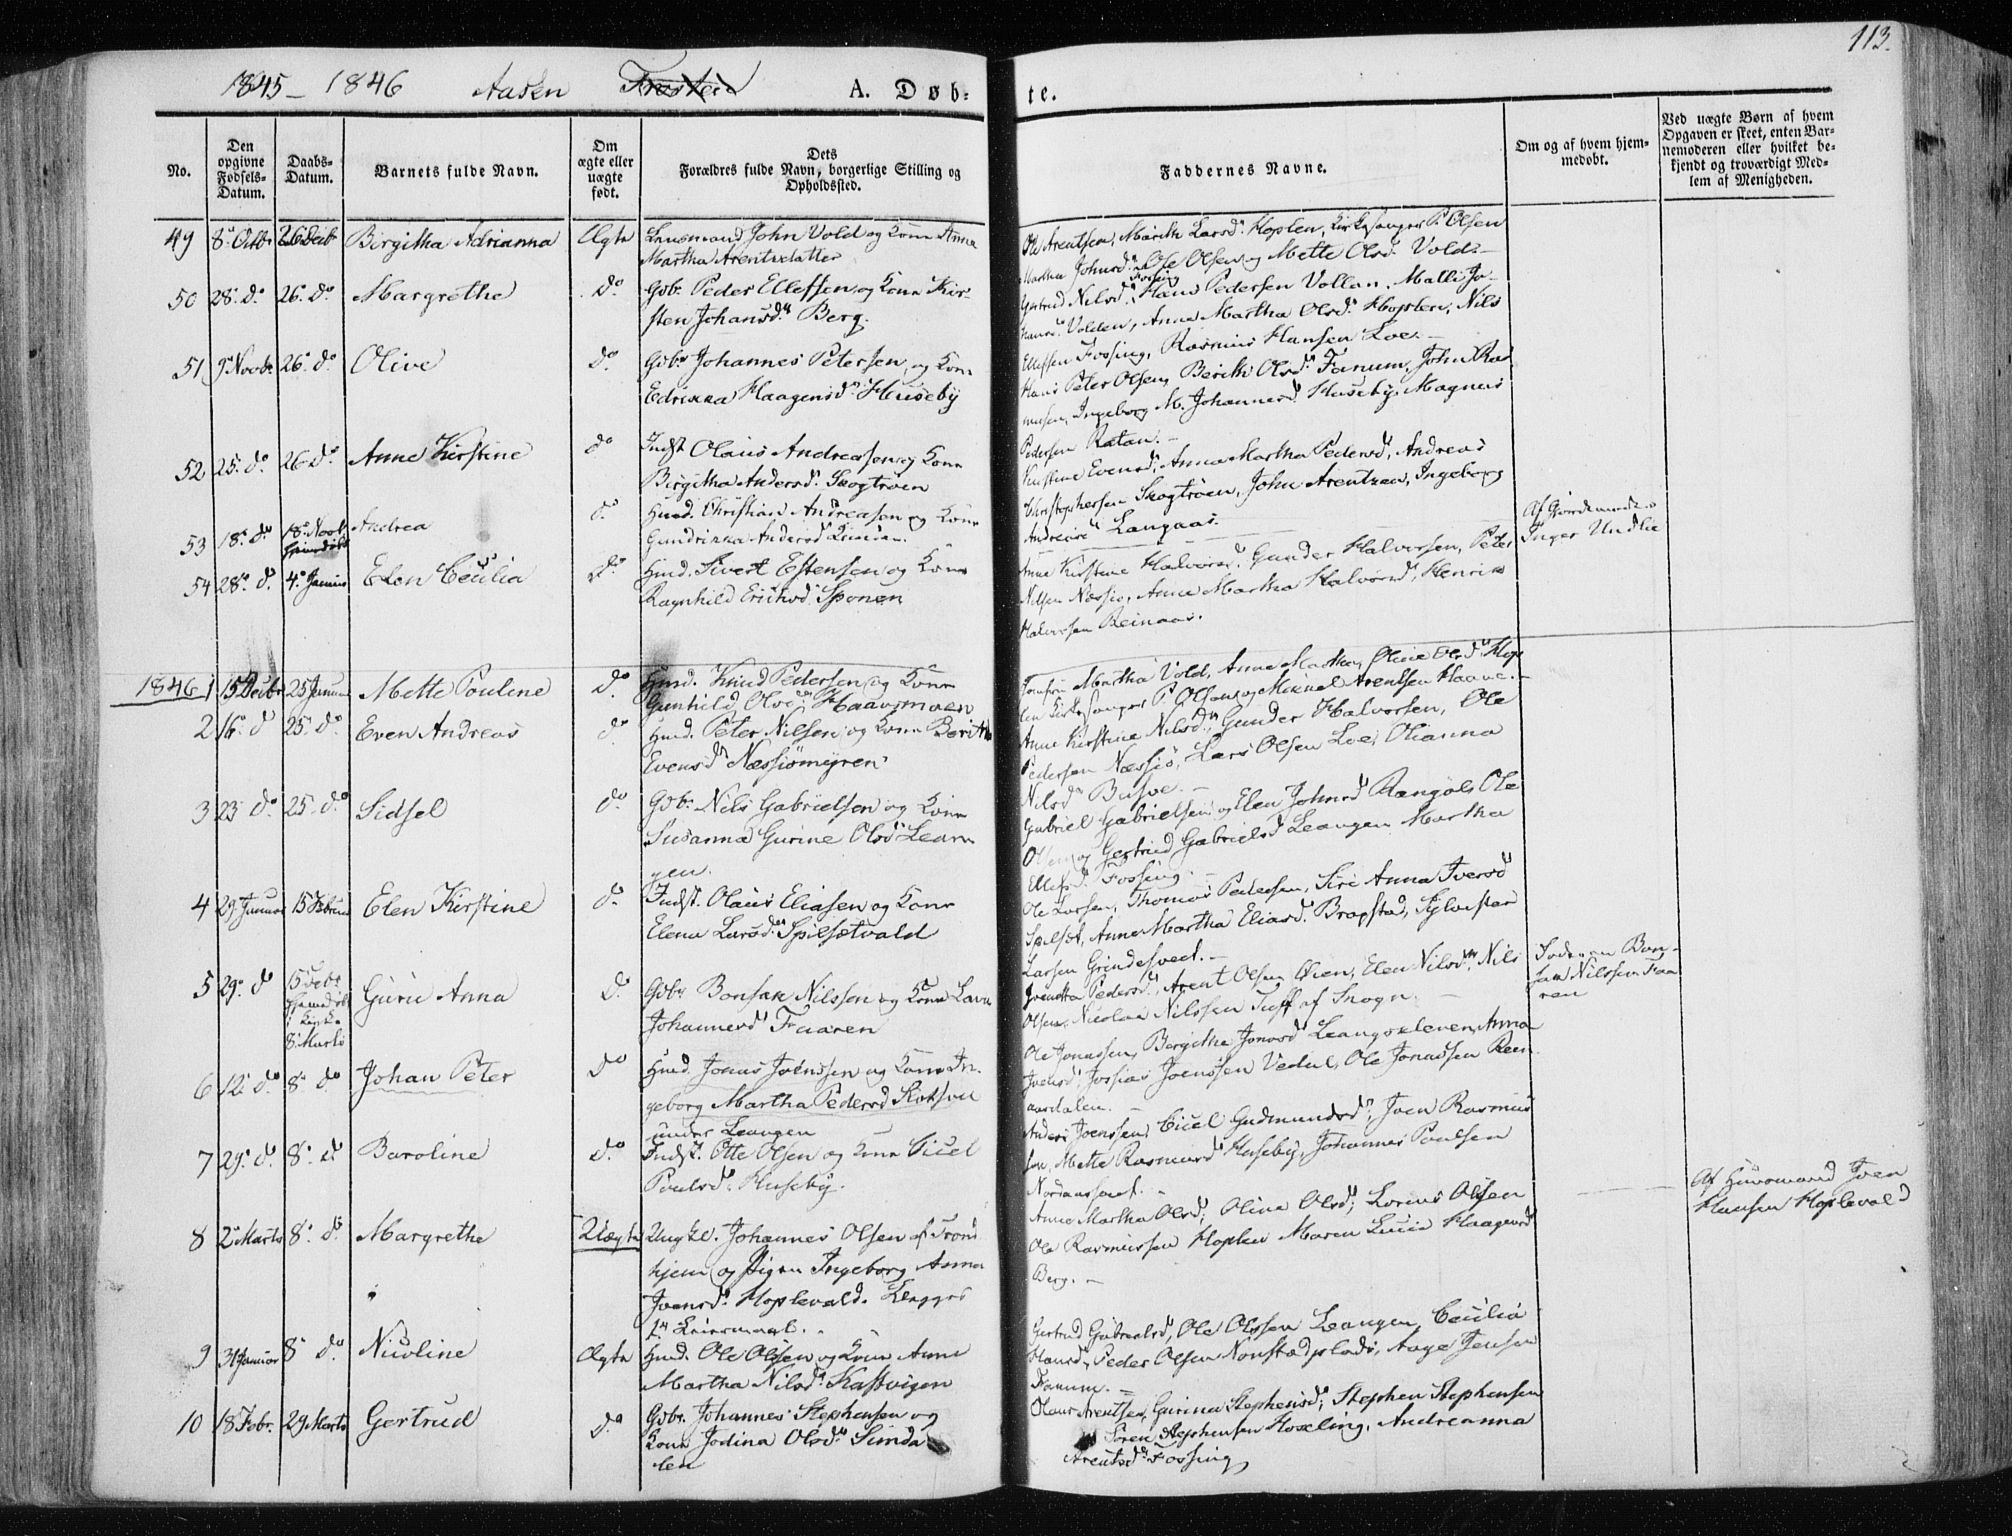 113.
1845- 1846 Aasen Frosten A. Døb- te.
No.
Den opgivne Fødsels-Datum.
Daabs-Datum.
Barnets fulde Navn.
Om ægte eller uægte født.
Dets Forældres fulde Navn, borgerlige Stilling og Opholdssted.
Faddernes Navne.
Om og af hvem hjem-
medøbt.
Ved uægte Børn af hvem
Opgaven er skeet, enten Bar-
nemoderen eller hvilket be-
kjendt og troværdigt Med-
lem af Menigheden.
49 8de Octbr 26 Decbr Birgitha Adrianna Ægte Landmand John Vold og Kone Anna
Martha Arentsdatter
Ole Arentsen, Marith Larsd. Hoplen, Kirkesanger P. Olsen
Martha Johnsd. Ole Olsen og Mette Olsd. Vold.-
50 28. do 26. do Margrethe do Gdbr. Peder Ellefsen og Kone Kir-
sten Johansd. Berg.
Gertrud Nilsd. Fossing Hans Pedersen Vollan, Malli Jo-
hansd. Volden, Anne Martha Olsd. Hoplen, Nils
Ellefsen Fossing, Rasmus Hansen Loe.-
51 9 Novbr 26. do Olive do Gdbr Johannes Petersen og Kone
Edrikka Haagensd. Huseby
Hans Peter Olsen, Berith Olsd. Fanum, John Ras
musen, Ingeborg M. Johannesd. Huseby, Magnus
Pedersen Ratan.-
52 25. do 26 do Anne Kirstine do Indst Olaus Andreasen og Kone
Birgitha Andersd. Skogtrøen
Kirstine Evensd, Anna Martha Pedersd, Andreas
Christophersen Skogtrøen, John Arentzen, Ingeborg
Andreasd Langaas.
53 18. do 18. Novbr Andrea do Husd. Christian Andreasen og Kone
Gundrikka Andersd
Af Gjordemoder
Inger Undlie
54 28. d. 4. Januar Elen Cecilia do Husd. Sivert Estensen og Kone
Ragnhild Ericksd. Sponen
Anne Kirstine Halvorsd, Gunder Halvorsen, Peter
Nilsen Næssiø, Anne Martha Halvorsd, Henrik
Halvorsen Reinaas.
1846 1 15 Decbr 25 Januar Mette Pouline do Husd. Knud Pedersen og Kone
Gunhild Olsd. Haavsmoen
Jomfru Martha Vold, Anne Martha, Oline Olsd. Hop
len Kirkesanger P. Olsen og Mikael Arentsen Haave.-
2 16. d 25. do Even Andreas do Husd. Peter Nilsen og Kone Berith
Evensd Næssiømyren
Anne Kirstine Nilsd., Gunder Halvorsen, Ole
Pedersen Næssiø, Lars Olsen Loe, Olianna
Nilsd Busve.-
3 23 do 25. do Sidsel do Gdbr. Nils Gabrielsen og Kone
Susanna Gurine Olsd Lean
gen.
Gabriel Gabrielsen og Elen Johnsd Rangøl, Ole
Olsen og Gertrud Gabrielsd Leangen Martha
Ellefsd. Fossing.-
4 29. Januar 15 Februar Elen Kirstine do Indst. Olaus Eliasen og Kone
Elena Larsd. Spilsætvald
Ole Larsen, Thomas Pedersen, Siri Anna Iversd
Spilset, Anne Martha Eliasd. Brapstad, Sylvester
Larsen Grindesvedt.-
5 29. d 15 Febr
hjemdøbt
i Kirke
8 Marts
Guru Anna do Gdbr Bonsak Nilssen og Kone
Johannesd Faaren
Pedersd., Arent Olsen Øien, Elen Nilsd., Nils
Olsen, Nicolai Nilssen Tuff af Snogn.-
Faderen Bon-
sak Nilssen Faa
ren
6 12. do 8. do Johan Peter do Husd. Jonas Joenssen og Kone In-
geborg Martha Pedersd
under Leangen
Ole Jonassen, Bergitha Jonasd Leangskleven, Anna
Joensd. Jossias Joenssen Vedul, Ole Jonassen Reen
aasdalen.-
7 29. d. 8. d Baroline do Indst. Otte Olsen og Kone Sicel
Poulsd. Huseby.
Anders Joenssen, Cicel Gudmundsd, Joen Rasmus
sen, Mette Rasmusd Huseby, Johannes Poulsen
8 2 Marts 8. do Margrethe Uægte Ungkl. Johannes Olsen af Trond
hjem og Pigen Ingeborg Anna
Joensd. Hoplevald. Begges
1ste Leiermaal.
Anne Martha Olsd, Oline Olsd, Lorens Olsen
Ole Rasmussen Hoplen Maren Lucia Haagensd
Berg.-
Af Huusmand Joen
Hansen Hoplevald
9 31 Januar 8 do Nicoline Ægte Husd. Ole Olsen og Kone Anne
Martha Nilsd. Hastvigen
Gertrud Gabrielsd, Ole Olssen Leangen, Cecilia
Hansd, Peder Olsen Nonstadplads, Aage Jensen
Fanum.-
10 18 Febr. 29 Marts Gertrud do Gdbr. Johannes Stephensen og
Kone Jodina Olsd. Sunda
len
Olaus Arentsen, Gurina Stephensd, Stephen Stephensen
Søren Stephensen Hoxling, Andreanna
Arentsd. Fossing